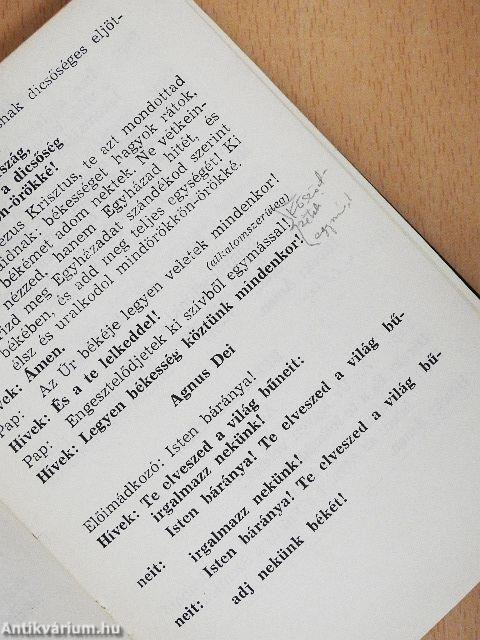 snak dicsőséges eljöt-
ország,
a dicsőség
ön-örökké!
ézus Krisztus, te azt mondottad
idnak: békességet hagyok rátok,
békémet adom nektek. Ne vétkein-
nézzed, hanem Egyházad hitét, és
ízd meg Egyházadat szándékod szerint
békében, és add meg teljes egységét! Ki
élsz és uralkodol mindörökkön-örökké.
vek: Ámen.
Pap: Az Úr békéje legyen veletek mindenkor!
Hívek: És a te lelkeddel!
(alkalomszerűleg)
Pap: Engesztelődjetek ki szívből egymással!
Hívek: Legyen békesség köztünk mindenkor!
Agnus Dei
Előimádkozó: Isten báránya!
Hívek: Te elveszed a világ bűneit:
irgalmazz nekünk!
Isten báránya! Te elveszed a világ bű-
neit: irgalmazz nekünk!
Isten báránya! Te elveszed a világ bű-
neit: adj nekünk békét!
Antikvárium.hu